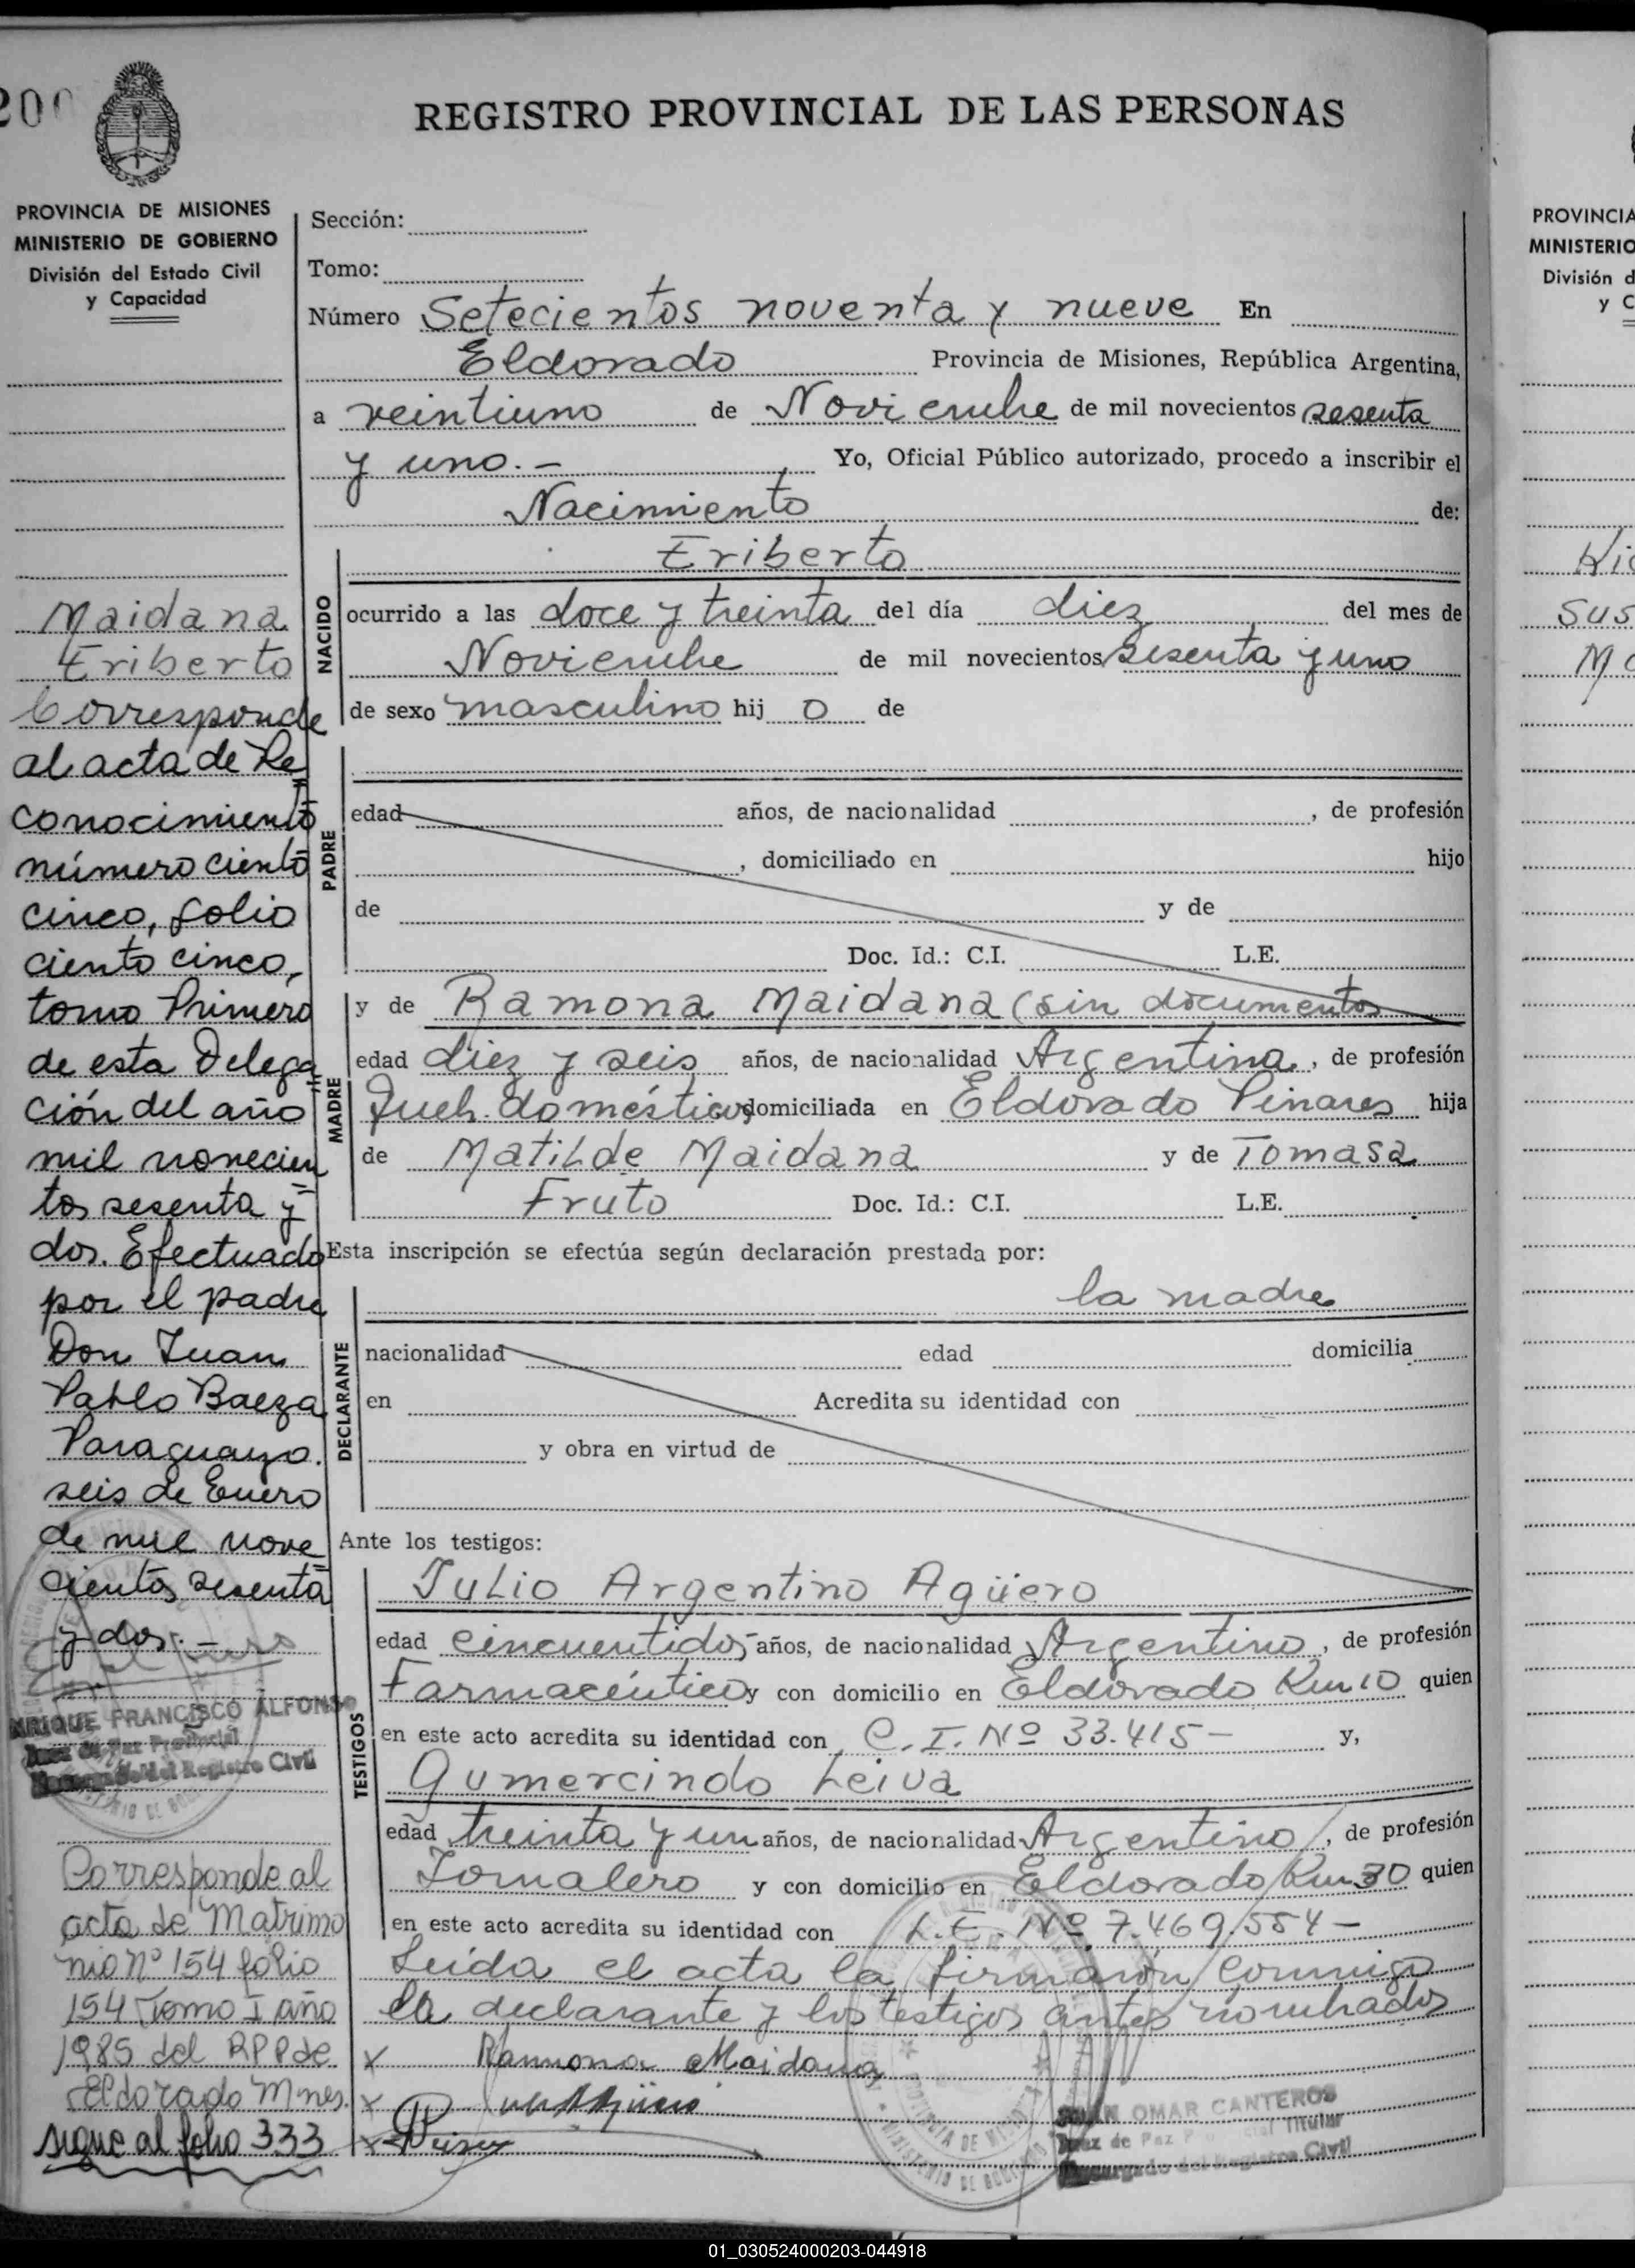 200
REGISTRO PROVINCIAL DE LAS PERSONAS
PROVINCIA DE MISIONES
MINISTERIO DE GOBIERNO
División del Estado Civil
y Capacidad
Sección:
Tomo:
Número Setecientos noventa y nueve En
Eldorado Provincia de Misiones, República Argentina,
a veintiuno de Noviembre de mil novecientos sesenta
y uno.- Yo, Oficial Público autorizado, procedo a inscribir el
Nacimiento de:
NACIDO
Eriberto
ocurrido a las doce y treinta del día diez del mes de
Noviembre de mil novecientos sesenta y uno
de sexo masculino hij o de
PADRE
edad años, de nacionalidad , de profesión
, domiciliado en hijo
de y de
Doc. Id.: C.I. L.E.
MADRE
y de Ramona Maidana (sin documentos
edad diez y seis años, de nacionalidad Argentina, de profesión
Queh. domésticos domiciliada en Eldorado Pinares hija
de Matilde Maidana y de Tomasa
Fruto Doc. Id.: C.I. L.E.
Esta inscripción se efectúa según declaración prestada por:
DECLARANTE
la madre
nacionalidad edad domicilia
en Acredita su identidad con
y obra en virtud de
Ante los testigos:
TESTIGOS
Julio Argentino Agüero
edad cincuentidos años, de nacionalidad Argentino, de profesión
Farmacéutico y con domicilio en Eldorado Km 10 quien
en este acto acredita su identidad con C.I. Nº 33.415- y,
Gumercindo Leiva
edad treinta y un años, de nacionalidad Argentino, de profesión
Jornalero y con domicilio en Eldorado Km 30 quien
en este acto acredita su identidad con L.E. Nº 7.469.554-
Leída el acta la firmarón conmigo
la declarante y los testigos antes nombrados
x Ramona Maidana
x
x
JUAN OMAR CANTEROS
Juez de Paz Provincial Titular
Encargado del Registro Civil
Maidana
Eriberto
Corresponde
al acta de Re
conocimiento
número ciento
cinco, folio
ciento cinco,
tomo Primero
de esta Delega
ción del año
mil novecien
tos sesenta y
dos. Efectuado
por el padre
Don Juan
Pablo Baeza
Paraguayo.
seis de Enero
de mil nove
cientos sesenta
y dos.-
NRIQUE FRANCISCO ALFONSO
Juez de Paz Provincial
Encargado del Registro Civil
Corresponde al
acta de Matrimo
nio nº 154 folio
154 Tomo I año
1985 del RPP de
Eldorado Mnes.
sigue al folio 333
PROVINCIA
MINISTERIO
División d
y C
Sus
01_030524000203-044918